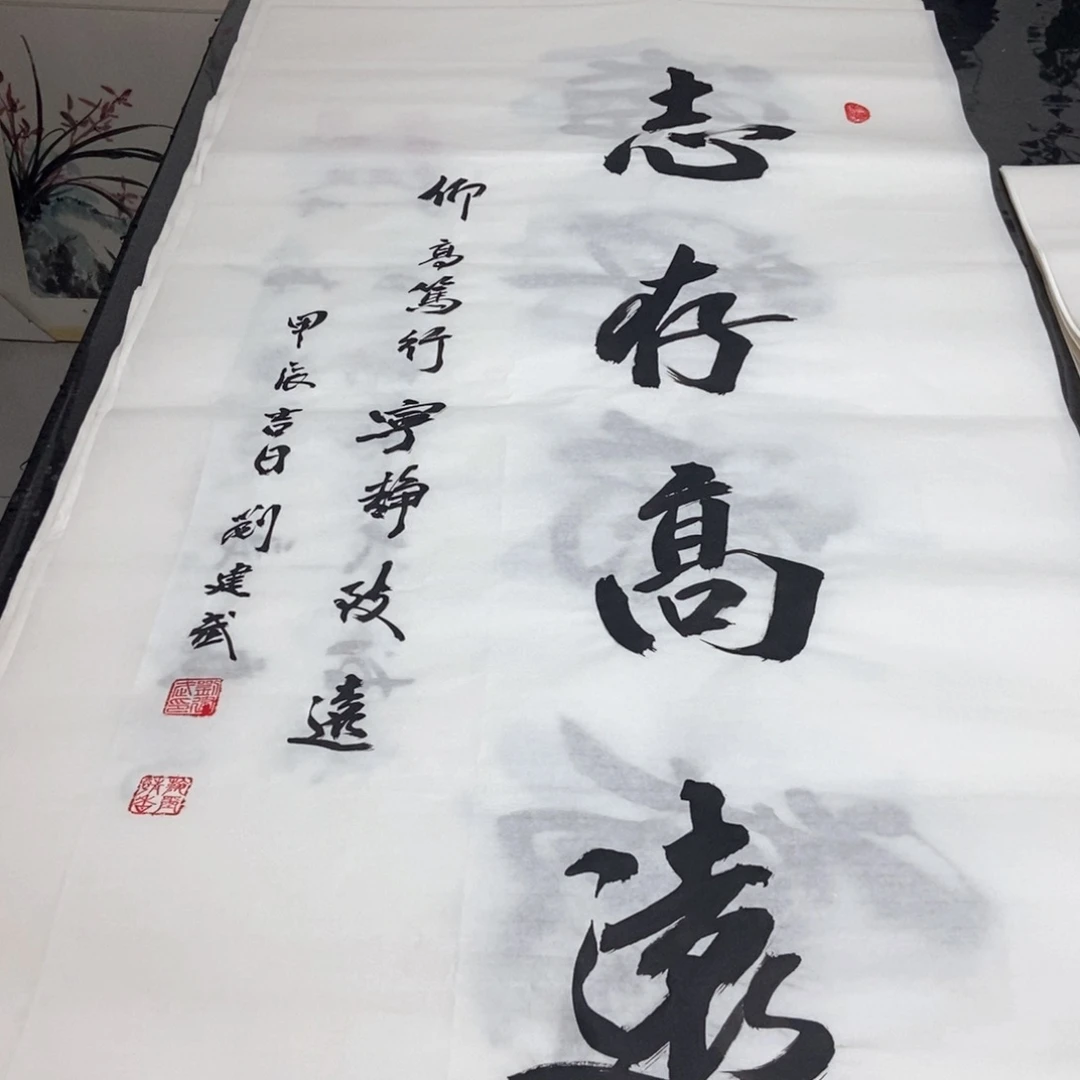 志存高遠
仰高篤行寧静致遠
甲辰吉日劉建武